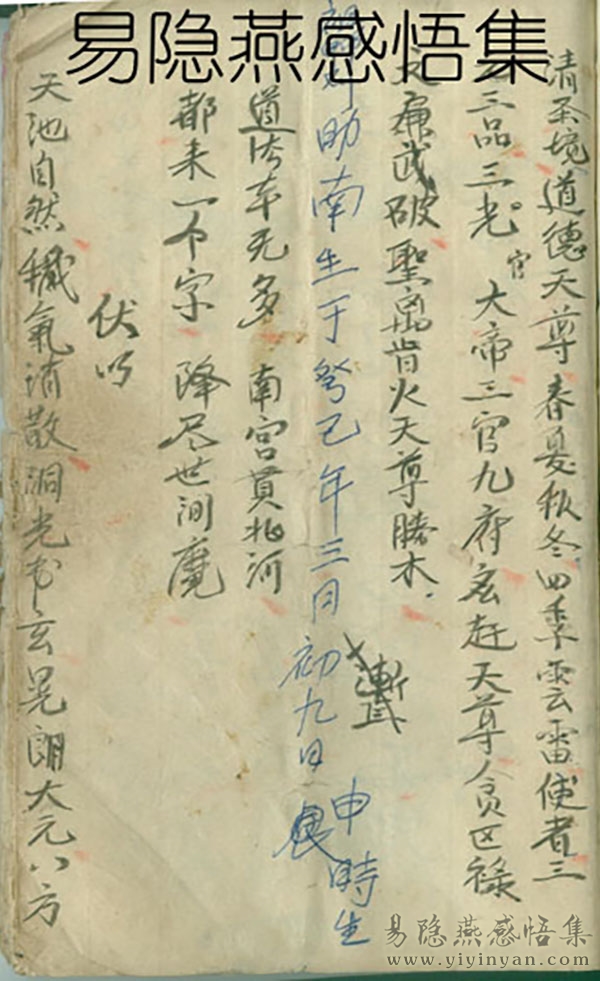 易隐燕感悟集
清圣境道德天尊春夏秋冬四季雲雷使者三
三品三光。官大帝三官九府玄赶天尊貪巨禄
文廉武破聖离肖火天尊勝木.
助南生于癸巳年三月初九日申時生
道法本无多 南宮貫北河
都来一个字 降尽世间魔
伏以
天池自然穢氣消散洞光玄晃朗大元八方
易隐燕感悟集
www.yiyinyan.com